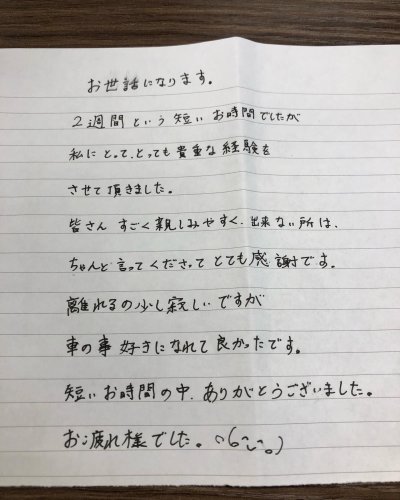 お世話になります。
2週間という短いお時間でしたが
私にとって、とっても貴重な経験を
させて頂きました。
皆さんすごく親しみやすく、出来ない所は、
ちゃんと言ってくださってとても感謝です。
離れるの少し寂しいですが
車の事好きになれて良かったです。
短いお時間の中、ありがとうございました。
お疲れ様でした。